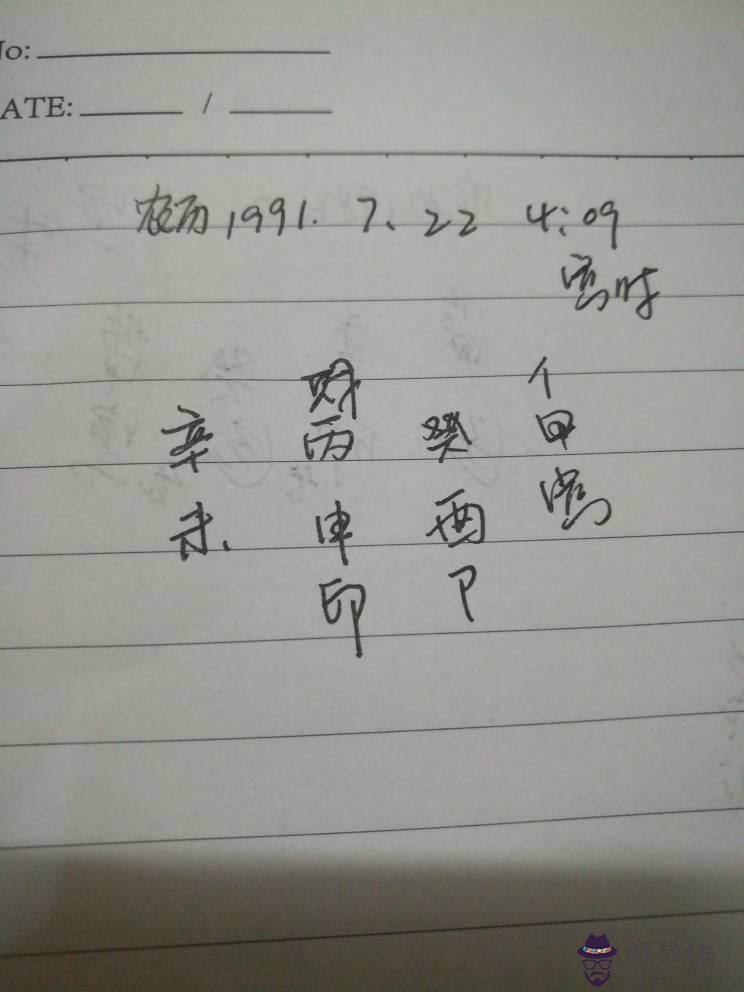 No:
DATE: /
农历 1991. 7. 22 4:09
寅时
财 亻
辛 丙 癸 甲
未. 申 酉 寅
印 卩